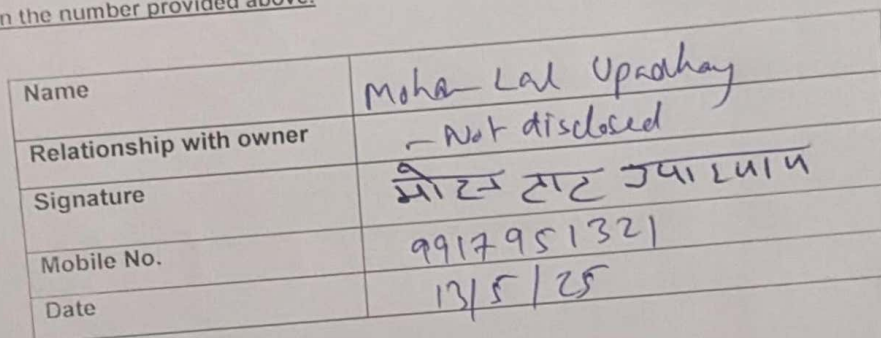 n the number provided above.
Name Mohan Lal Upadhay
Relationship with owner - Not disclosed
Signature मोहन लाल उपाध्याय
Mobile No. 9917951321
Date 13/5/25